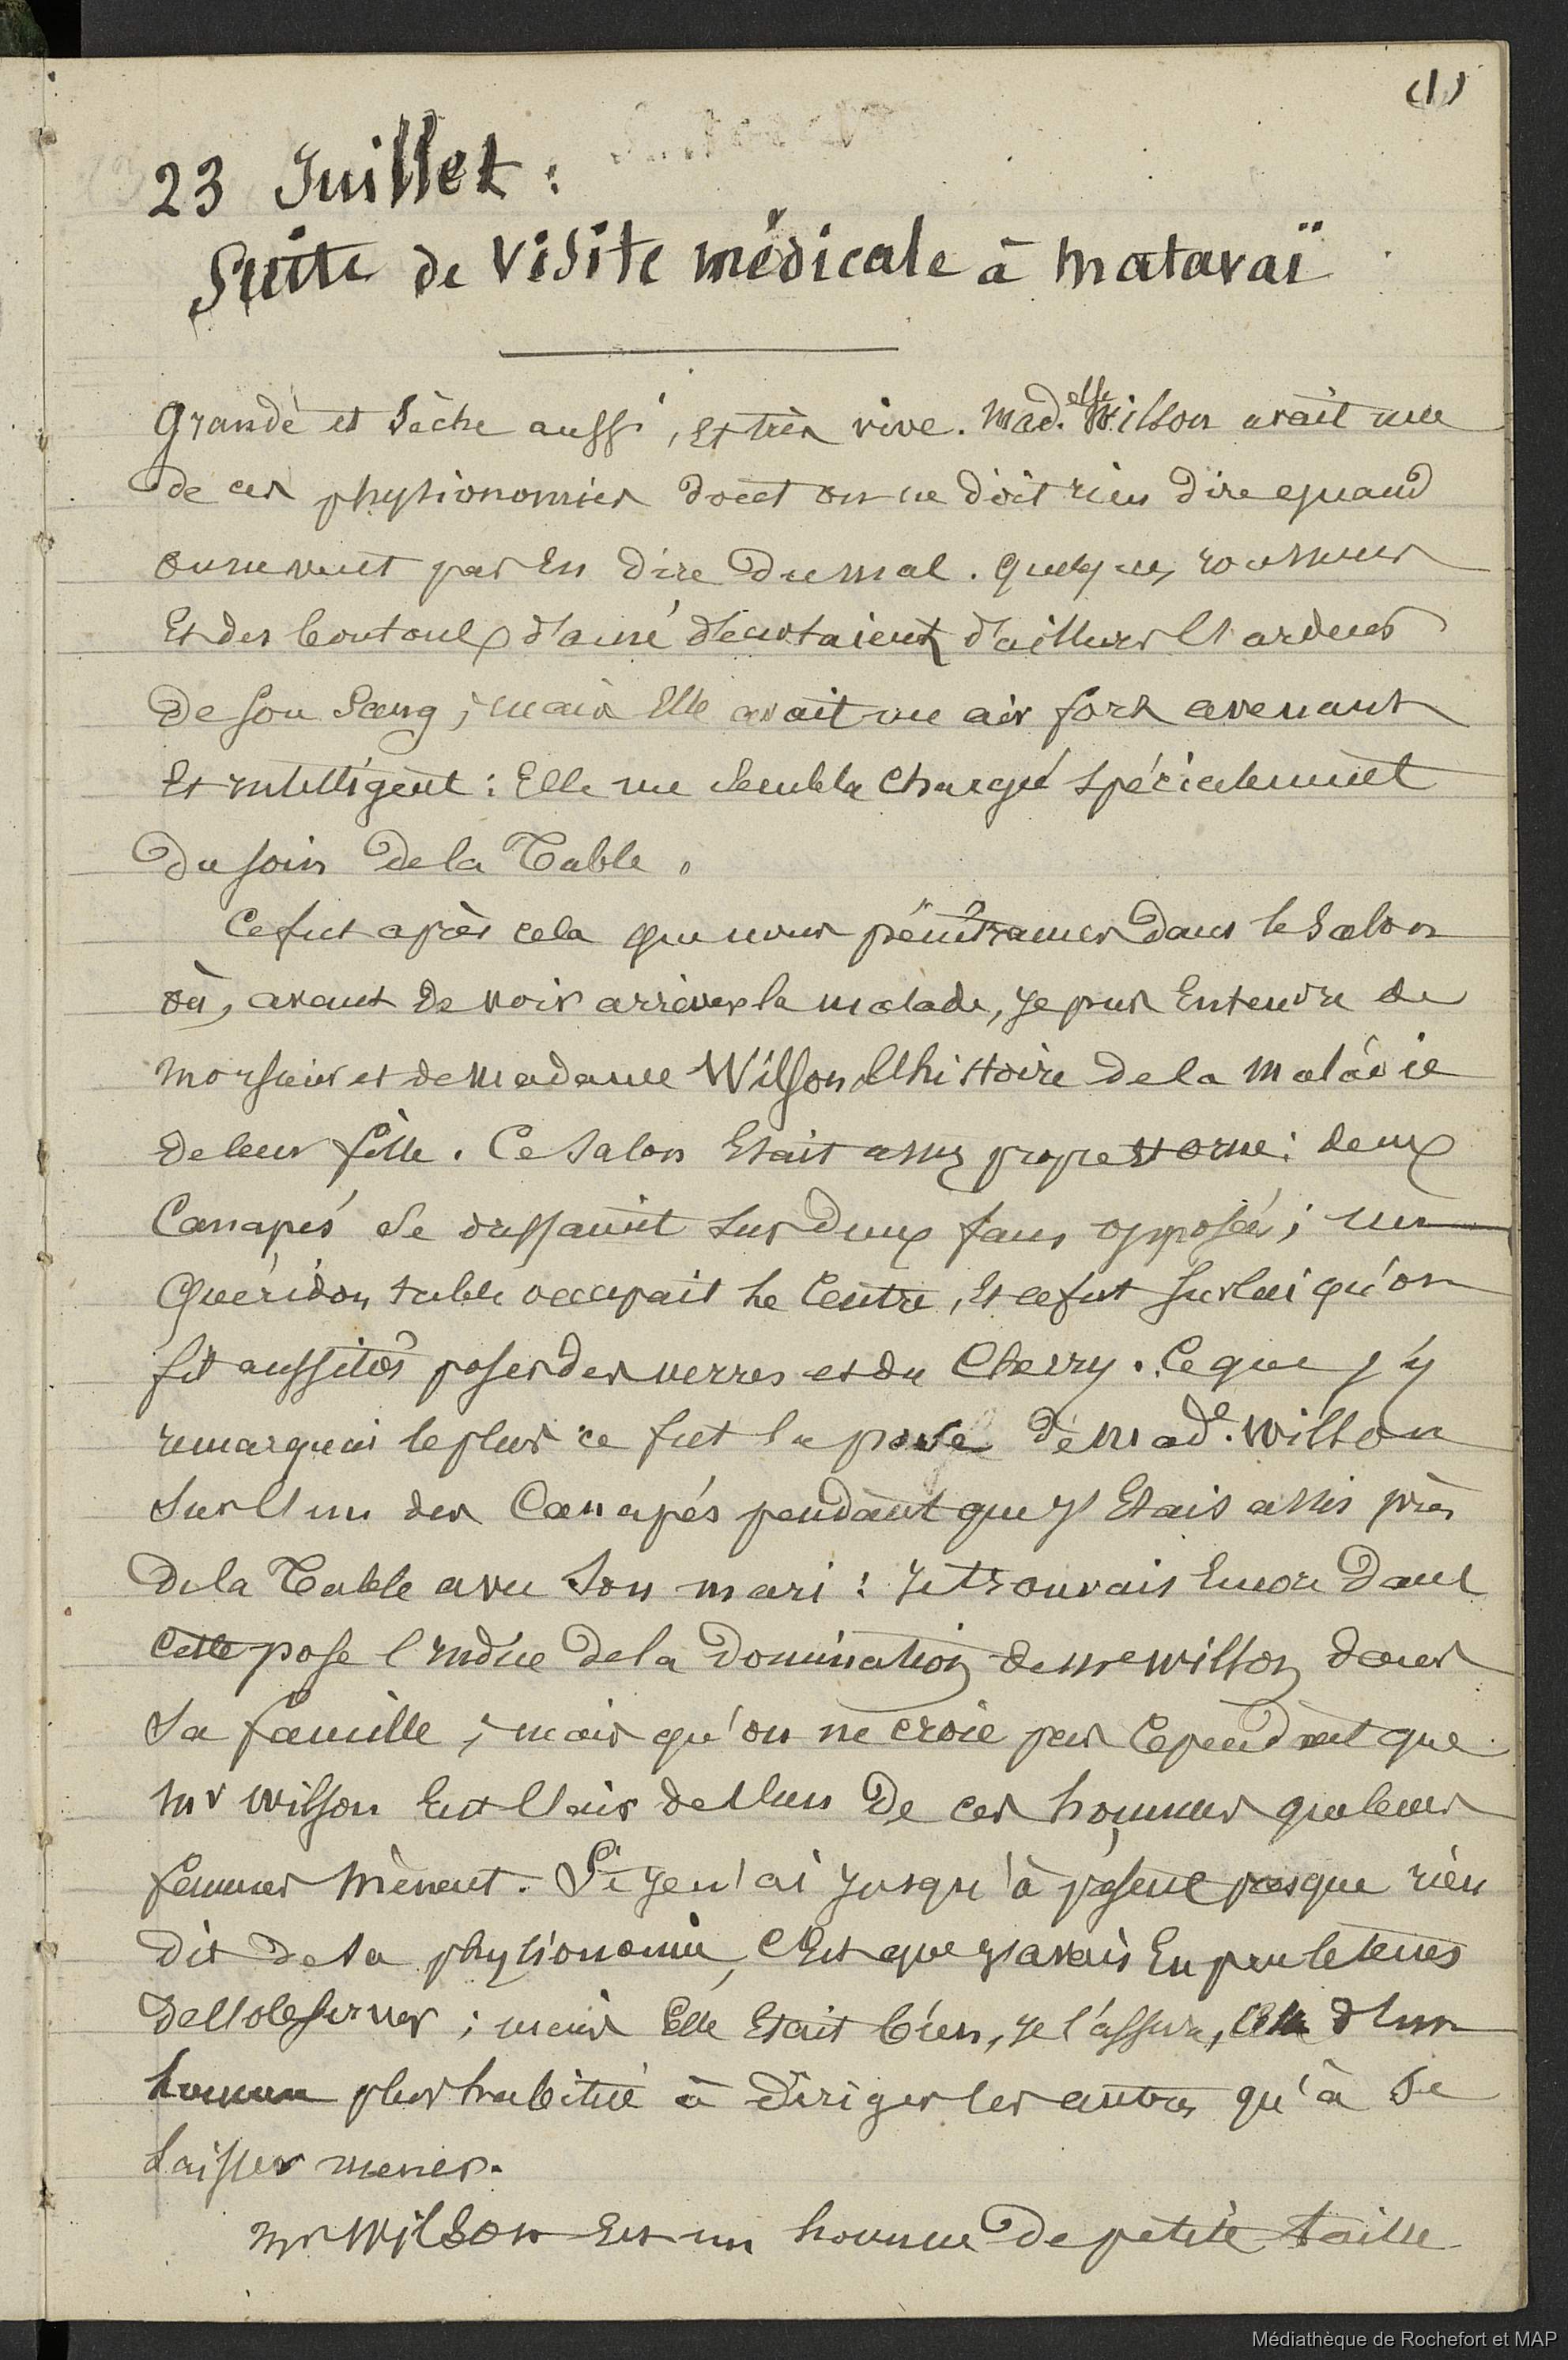 (1)
23 Juillet :
Suite de visite médicale à Mataraï
Grande et sèche aussi, et très vive. Mad.elle Wilson avait une
de ces physionomies dont on ne doit rien dire quand
on ne veut pas en dire du mal. quelques rousseurs
Et des boutons d'acné d'ailleurs l'ardeur
de son sang ; mais Elle avait un air fort avenant
Et intelligent : Elle me sembla chargé spécialement
du soin de la Table.
Ce fut après cela que nous pénétrames dans le salon
où, avant de voir arriver la malade, je pus Entendre de
monsieur et de madame Wilson l'histoire de la maladie
de leur fille. Ce salon Etait assez propre et orné : deux
Canapés se dressaient sur deux faces opposées ; un
Guéridon table occupait le Centre, Et ce fut sur lui qu'on
fit aussitôt poser des verres et du Cherry. Ce que j'y
remarquai le plus ce fut la pose de Made. Wilson
sur l'un des Canapés pendant que j'Etais assis près
de la Table avec son mari : je trouvais Encore dans
Cette pose l'indice de la Domination de me Wilson dans
sa famille ; mais qu'on ne croie pas Cependant que
Mr Wilson Eut l'air de l'un de ces hommes que leurs
femmes mènent. Si je n'ai jusqu'à présent presque rien
dit de sa physionomie, c'Est que j'avais Eu peu le tems
de l'observer ; mais Elle Etait bien, je l'assure, d'un
homme plus habitué à diriger les autres qu'à se
laisser mener.
Mr Wilson Est un homme de petite taille
Médiathèque de Rochefort et MAP